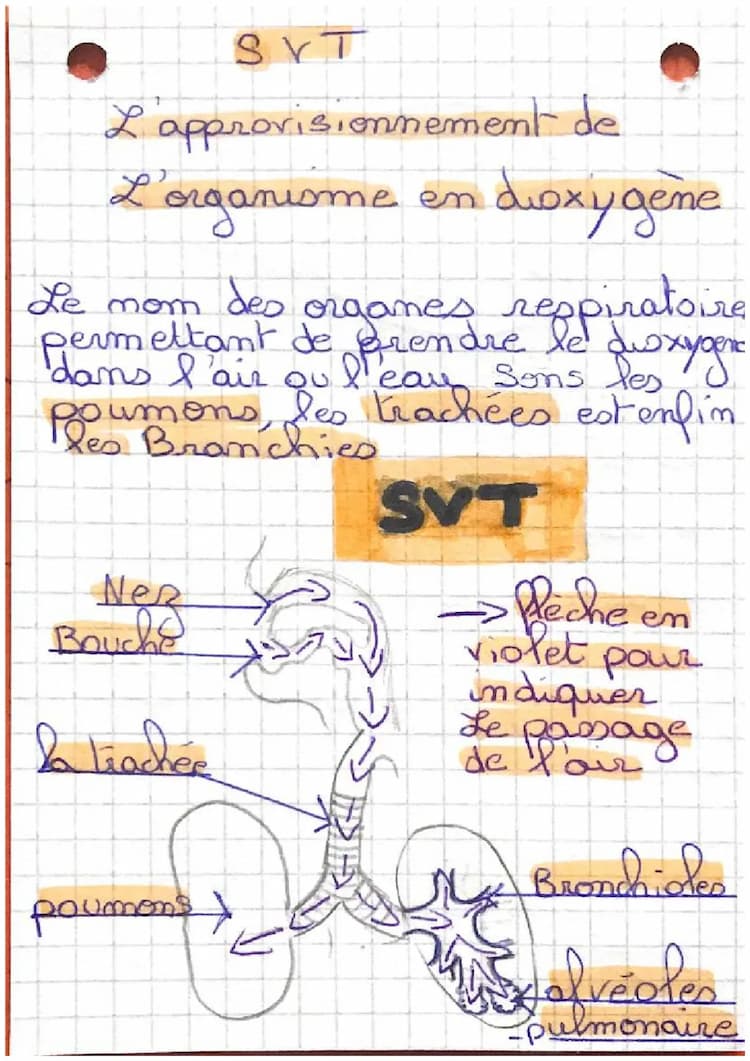 SVT
L'approvisionnement de
L'organisme en dioxygène
Le nom des organes respiratoire
permettant de prendre le dioxygene
dans l'air ou l'eau Sons les
poumons, les trachées est enfin
les Branchies
SVT
Nez
Bouche
→ flèche en
violet pour
indiquer
Le passage
de l'air
la trachée
Bronchioles
poumons
alvéoles
-pulmonaire